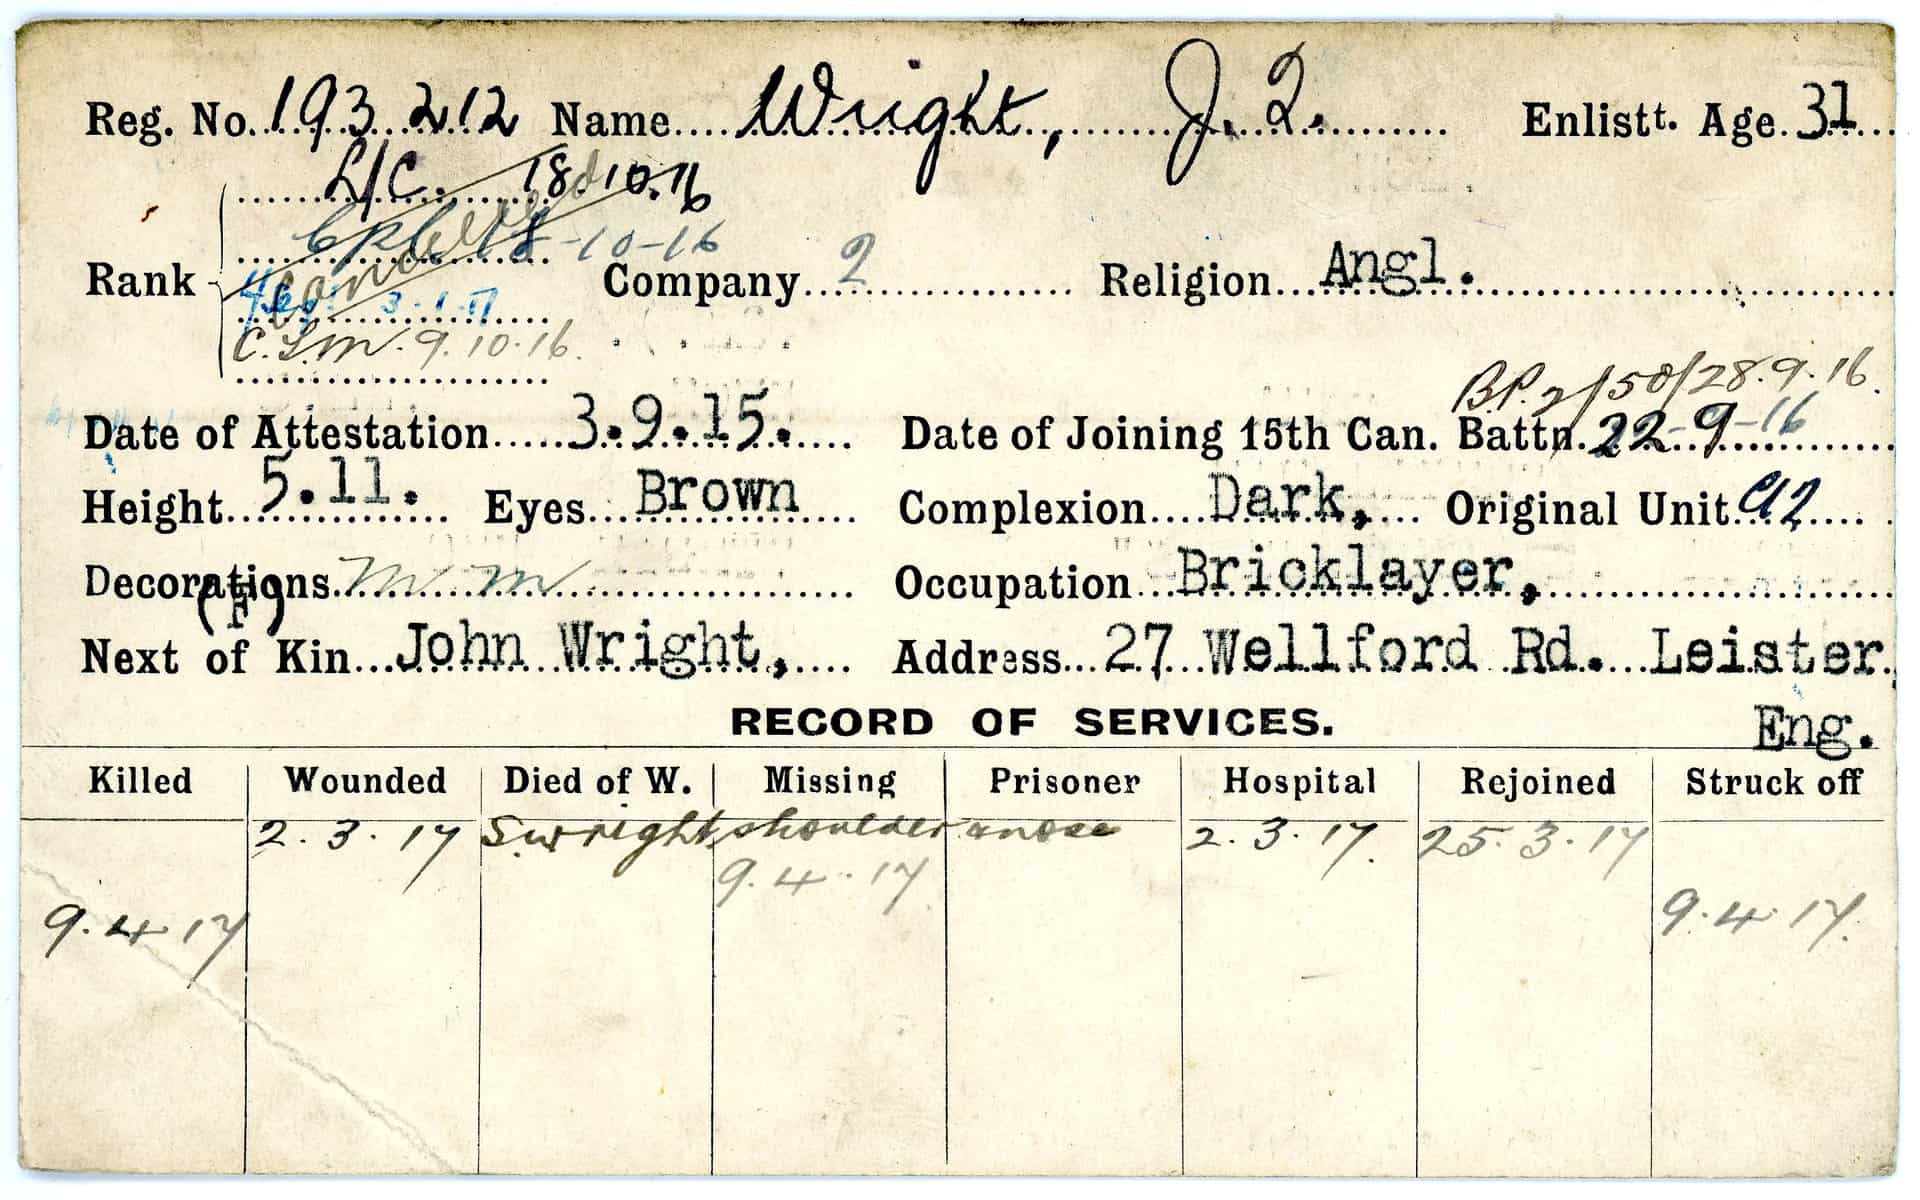 Reg. No. 193212 Name Wright, J. Q. Enlistt. Age. 31
L/C. 18.10.16
Cpl 18-10-16
Cancelled
Rank Company 2 Religion Angl.
3-1-17
C.S.M. 9.10.16.
B.P.2/50/28.9.16.
Date of Attestation 3.9.15. Date of Joining 15th Can. Battn. 22-9-16
Height 5.11. Eyes Brown Complexion Dark, Original Unit 92
Decorations M M Occupation Bricklayer,
(F)
Next of Kin John Wright, Address 27 Wellford Rd. Leister,
RECORD OF SERVICES. Eng.
Killed Wounded Died of W. Missing Prisoner Hospital Rejoined Struck off
2.3.17 S.W. right shoulder & nose 2.3.17. 25.3.17
9.4.17
9.4.17 9.4.17.